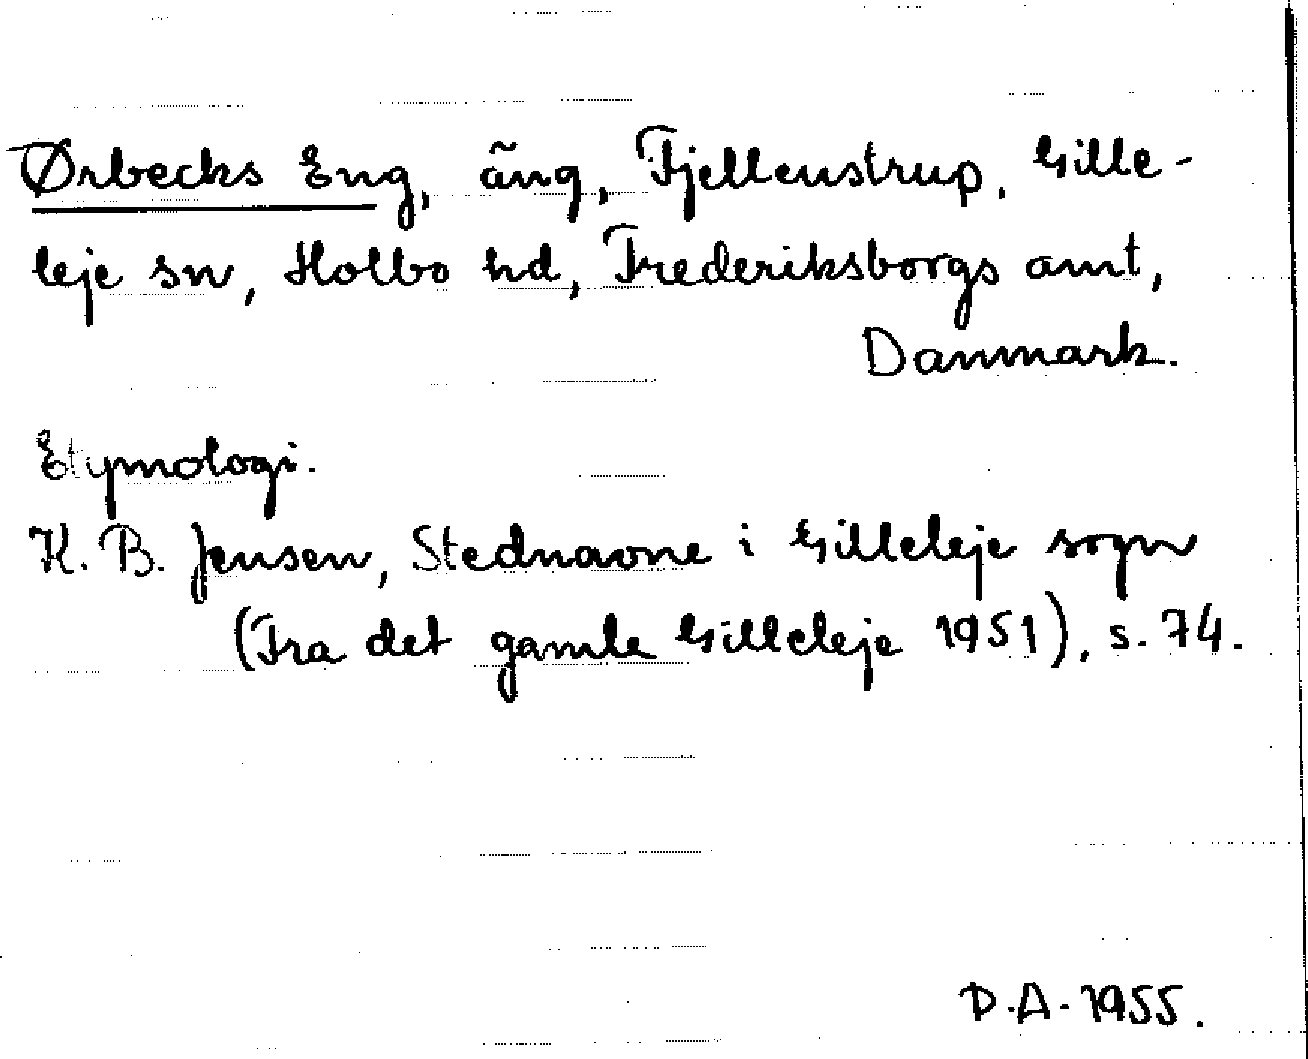 Ørbecks Eng, äng, Fjellenstrup, Gille-
leje sn, Holbo hd, Frederiksborgs amt,
Danmark.
Etymologi.
K. B. Jensen, Stednavne i Gilleleje sogn
(Fra det gamle Gilleleje 1951), s. 74.
D.A. 1955.